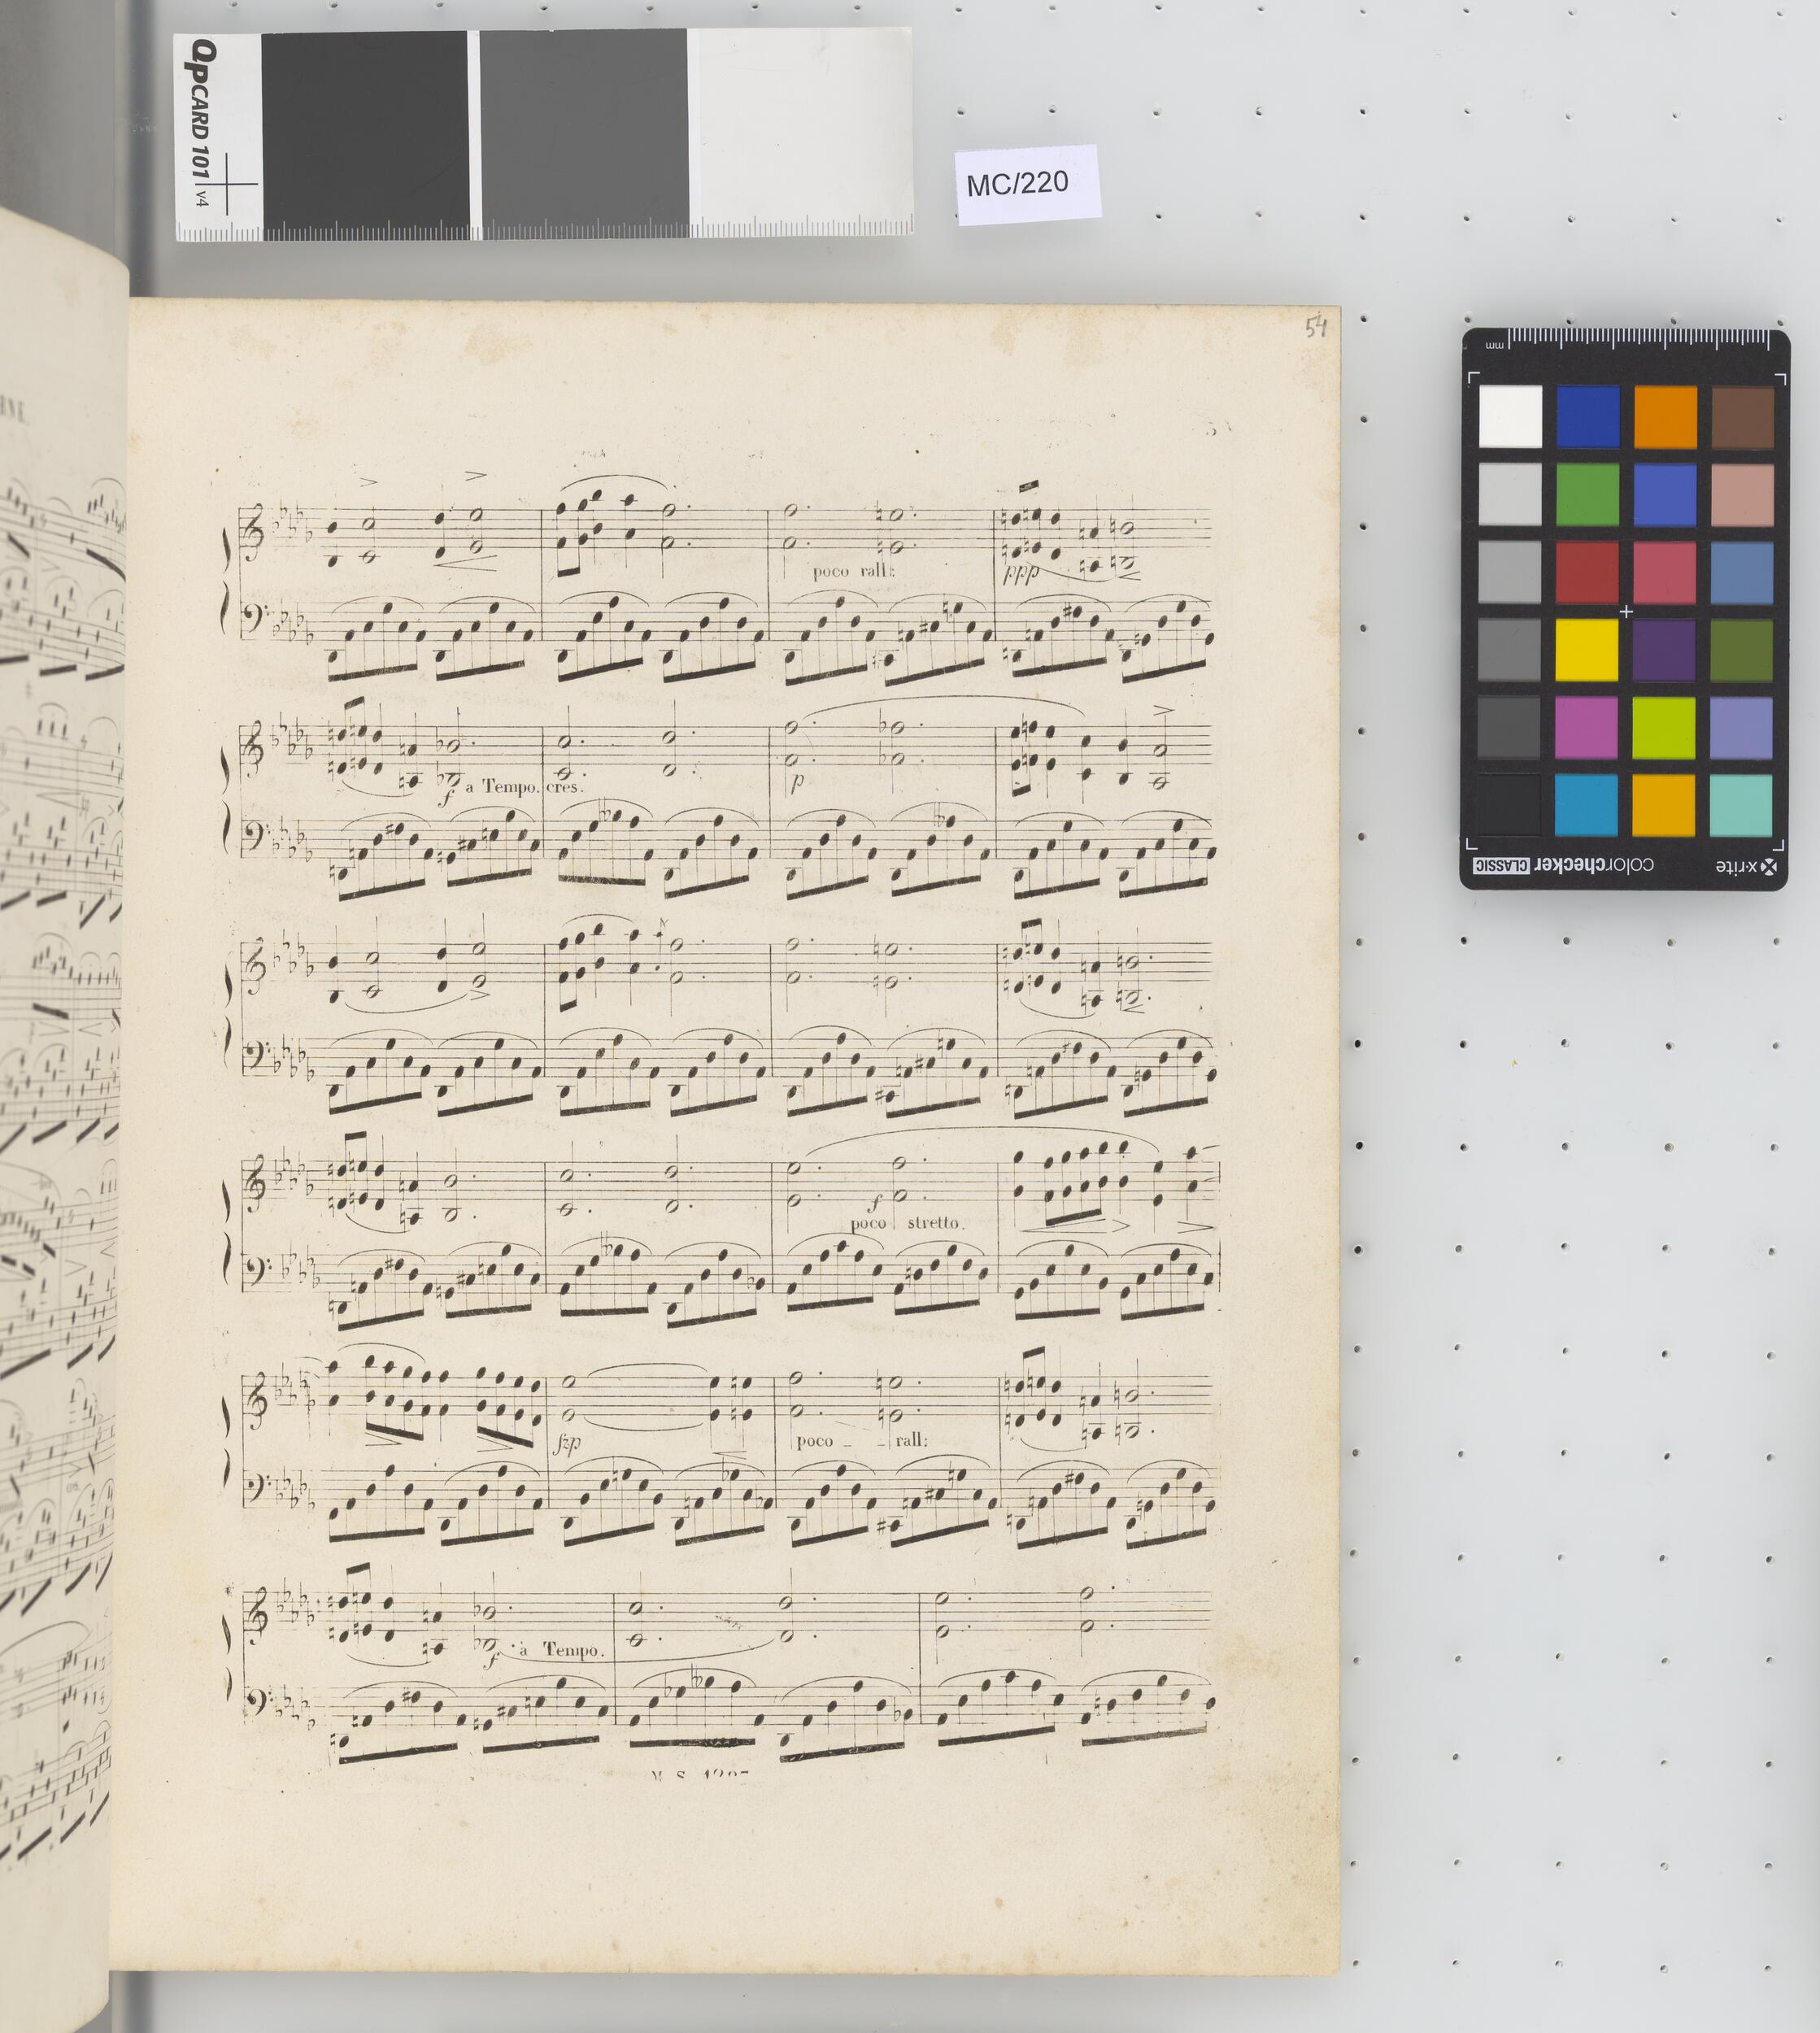 QPCARD 101 v4
MC/220
54
mm
poco rall:
ppp
f a Tempo. cres.
p
f
poco stretto.
fzp
poco rall:
f a Tempo.
M S
colorchecker CLASSIC
x-rite